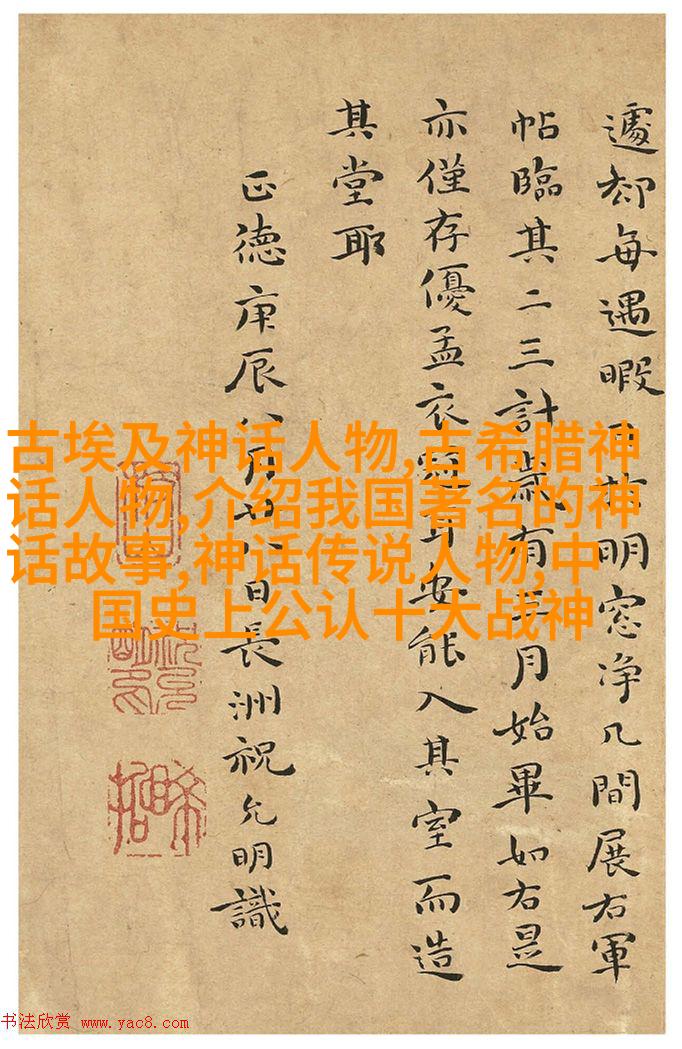 遽却每遇暇日於明窓净几間展右軍
帖臨其二三計歳有半月始畢如右是
亦僅存優孟衣冠耳安能入其室而造
其堂耶
正德庚辰八月廿八日長洲祝允明識
古埃及神话人物,古希腊神
话人物,介绍我国著名的神
话故事,神话传说人物,中
国史上公认十大战神
书法欣赏 www.yac8.com